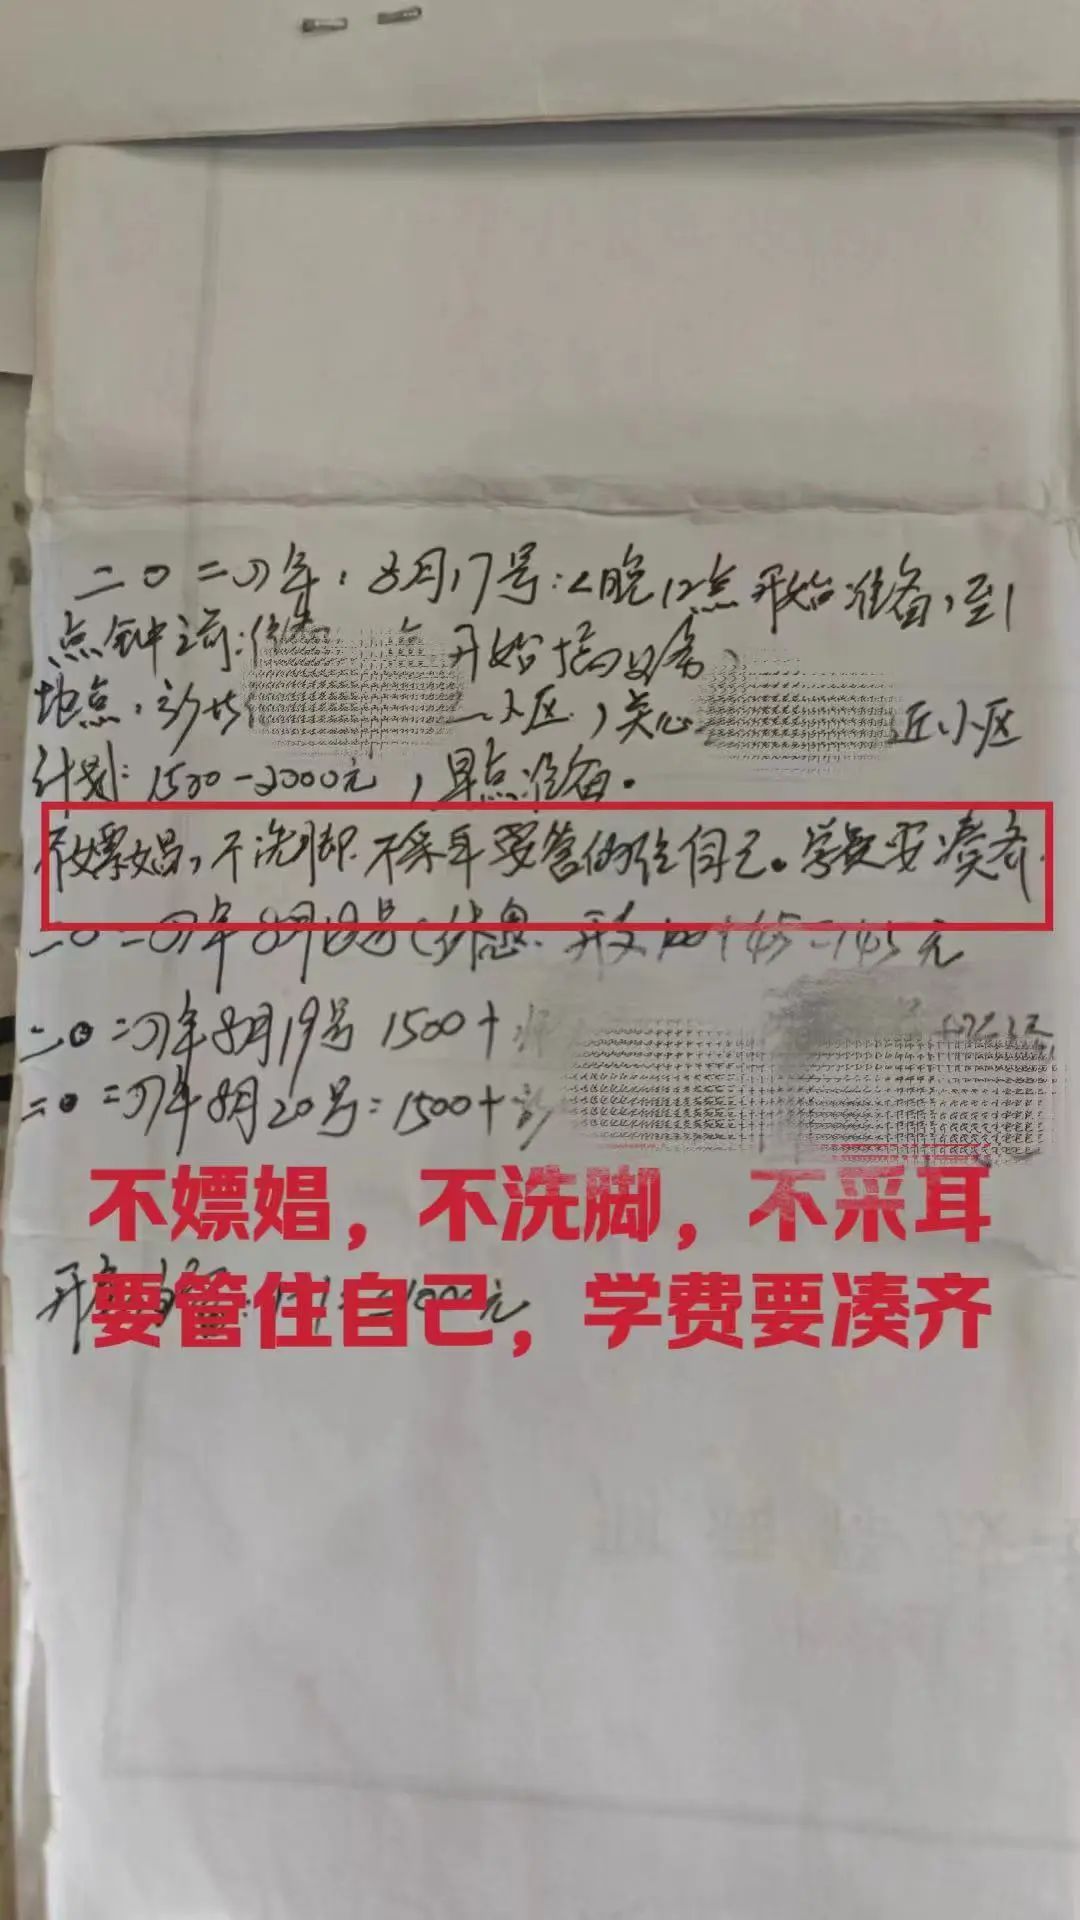 二〇二四年，8月17号：<晚12点开始准备，到1
点钟之前： 开始搞
地点： 小区，关心 近小区
计划：1500-2000元，早点准备。
不嫖娼，不洗脚 不采耳 要管住自己。学费要凑齐
二〇二四年8月18号（休息. 开支100+45=145元
二〇二四年8月19号 1500+
二〇二四年8月20号：1500+
不嫖娼，不洗脚，不采耳
要管住自己，学费要凑齐